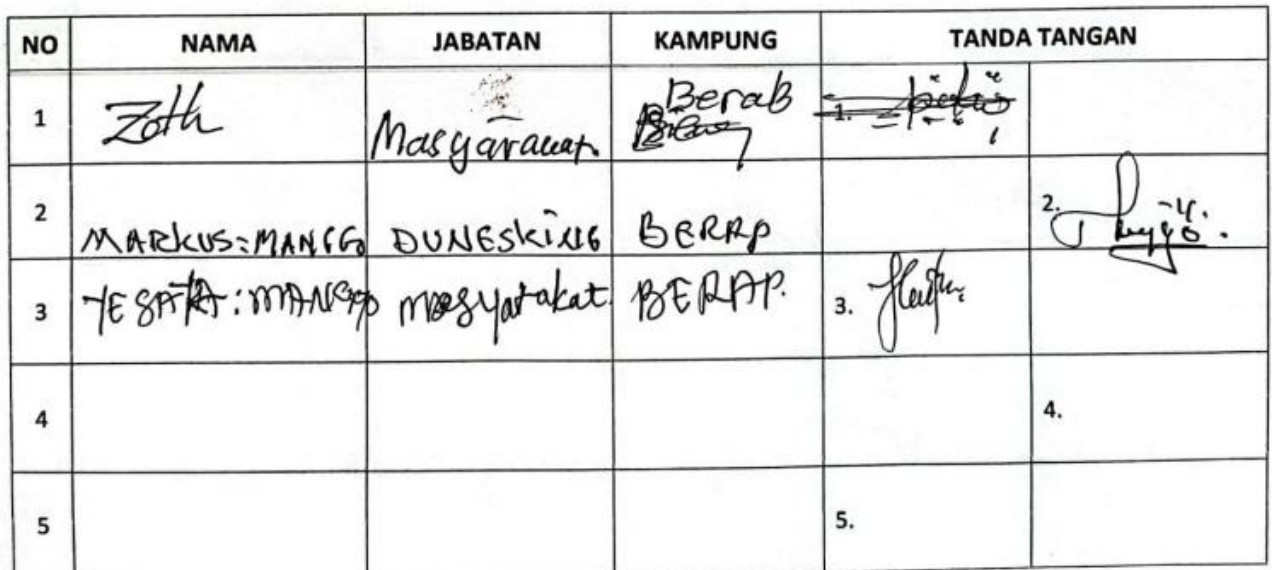 NO NAMA JABATAN KAMPUNG TANDA TANGAN
1 Zoth Masyarauat. Berab 1.
2 MARKUS:MANGGO DUNESKING BERAP 2.
3 MANGGO masyarakat BERAP. 3.
4 4.
5 5.